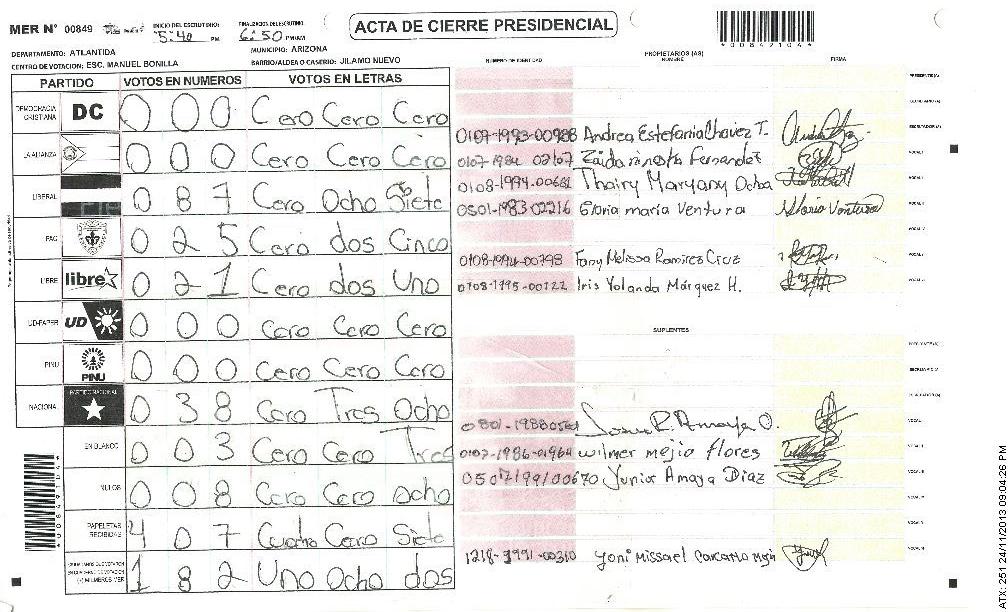 MER N° 00849
INICIO DEL ESCRUTINIO: 5:40 PM
FINALIZACION DEL ESCRUTINIO 6:50 PM/AM
ACTA DE CIERRE PRESIDENCIAL
*00842104*
DEPARTAMENTO: ATLANTIDA
MUNICIPIO: ARIZONA
CENTRO DE VOTACION: ESC. MANUEL BONILLA
BARRIO/ALDEA O CASERIO: JILAMO NUEVO
PARTIDO VOTOS EN NUMEROS VOTOS EN LETRAS
DEMOCRACIA CRISTIANA DC 0 0 0 Cero Cero Cero
LA ALIANZA 0 0 0 Cero Cero Cero
LIBERAL 0 8 7 Cero Ocho Siete
PAC 0 2 5 Cero dos Cinco
LIBRE libre 0 2 1 Cero dos Uno
UD-FAPER UD 0 0 0 Cero Cero Cero
PINU PINU 0 0 0 Cero Cero Cero
NACIONAL PARTIDO NACIONAL 0 3 8 Cero Tres Ocho
EN BLANCO 0 0 3 Cero Cero Tres
NULOS 0 0 8 Cero Cero Ocho
PAPELETAS RECIBIDAS 4 0 7 Cuatro Cero Siete
1 8 2 Uno Ocho dos
NUMERO DE IDENTIDAD
PROPIETARIOS (AS)
NOMBRE
FIRMA
PRESIDENTE (A)
SECRETARIO (A)
0107-1993-00988 Andrea Estefania Chavez T. ESCRUTADOR (A)
0107-1984 02107 Zaida Fernandez VOCAL I
0108-1994-00681 Thairy Maryany Ochoa VOCAL II
0501-1983 02216 Gloria maría Ventura Gloria Ventura
0108-1994-00798 Fany Melissa Ramirez Cruz
0708-1995-00122 Iris Yolanda Márquez H.
SUPLENTES
R. Amaya O.
0107-1986-01964 wilmer mejia flores
0507199100670 Junior Amaya Diaz
1218-1991-00310 Yoni Missael Carcamo Mejia
ATX: 251 24/11/2013 09:04:26 PM